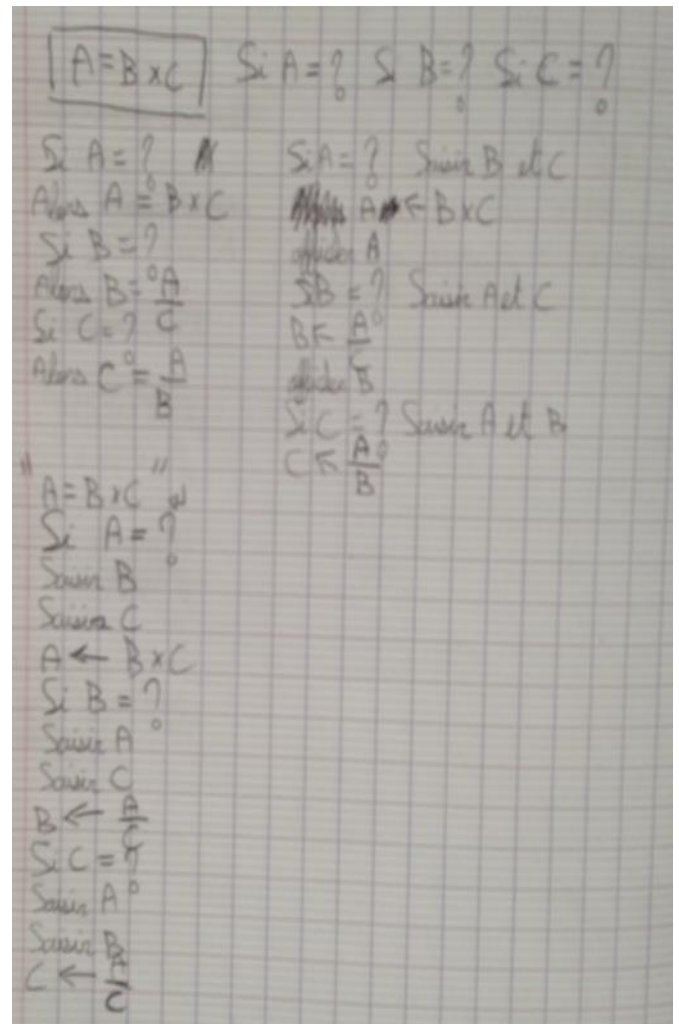 A = B × C Si A = ? Si B = ? Si C = ?
Si A = ?
Alors A = B × C
Si B = ?
Alors B = A/C
Si C = ?
Alors C = A/B
Si A = ? Saisir B et C
A ← B × C
afficher A
Si B = ? Saisir A et C
B ← A/C
afficher B
Si C = ? Saisir A et B
C ← A/B
" A = B × C "
Si A = ?
Saisir B
Saisir C
A ← B × C
Si B = ?
Saisir A
Saisir C
B ← A/C
Si C = ?
Saisir A
Saisir B